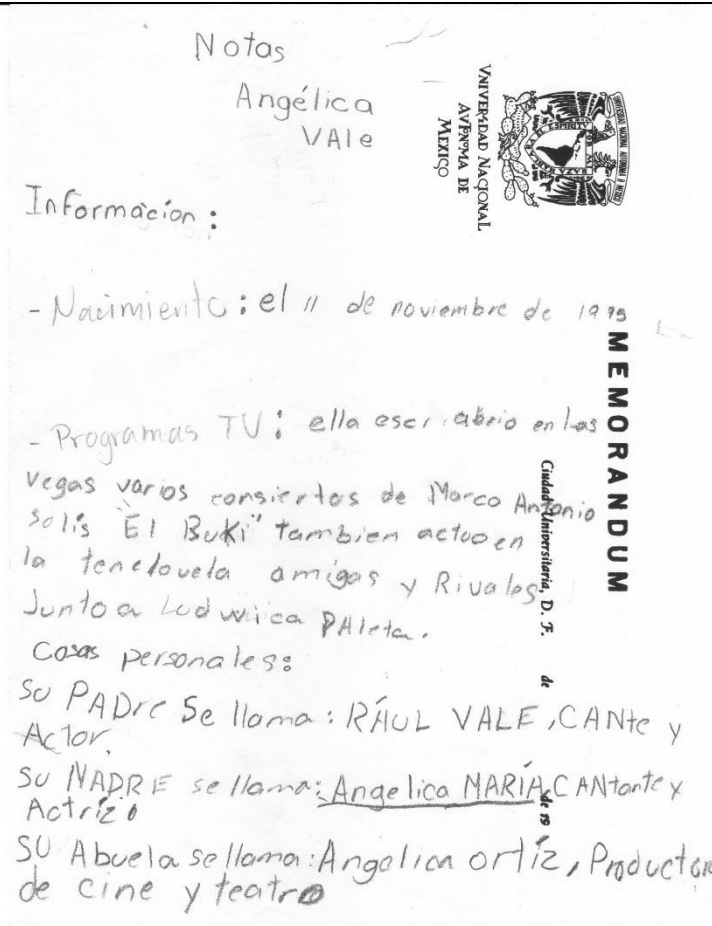 Notas
Angélica
VAle
VNIVER4DAD NACIONAL
AVFNMA DE
MEXICO
Informacion:
- Nacimiento: el 11 de noviembre de 1975
MEMORANDUM
Ciudad Universitaria, D. F. de de 19
- Programas TV: ella abrio en las
vegas varios consiertos de Marco Antonio
solís "El Buki" tambien actuo en
la tenelovela amigas y Rivales
Junto a Ludwiica PAleta.
Cosas personales:
SU PADre Se llama: RÁUL VALE, CANte y
Actor.
SU MADRE se llama: Angelica MARÍA, CANtante y
Actriz.
SU Abuela se llama: Angelica ortíz, Productora
de cine y teatro